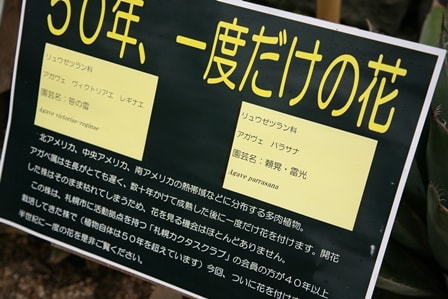 50年、一度だけの花
リュウゼツラン科
アガヴェ ヴィクトリアエ レギナエ
園芸名：笹の雪
Agave victoriae-reginae
リュウゼツラン科
アガヴェ パラサナ
園芸名：頼晃・雷光
Agave parrasana
北アメリカ、中央アメリカ、南アメリカの熱帯域などに分布する多肉植物。
アガベ属は生長がとても遅く、数十年かけて成熟した後に一度だけ花を付けます。開花
した株はそのまま枯れてしまうため、花を見る機会はほとんどありません。
この株は、札幌市に活動拠点を持つ「札幌カクタスクラブ」の会員の方が４０年以上
栽培してきた株で（植物自体は５０年を超えています）今回、ついに花を付け
半世紀に一度の花を是非ご覧ください。